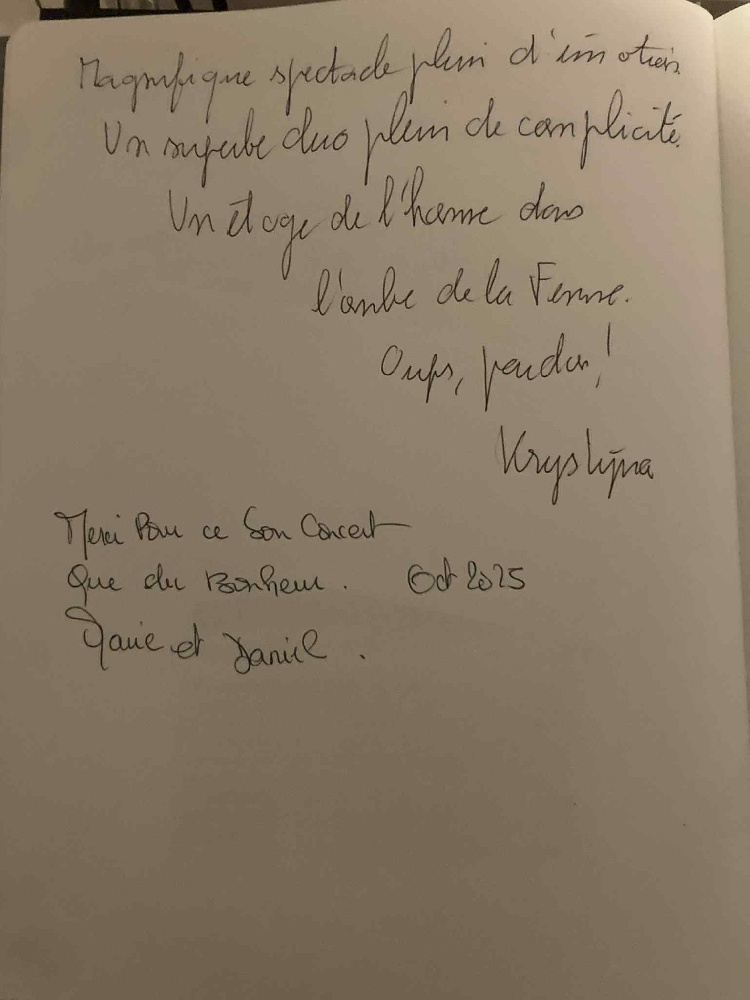 Magnifique spectacle plein d'émotion.
Un superbe duo plein de complicité.
Un éloge de l'homme dans
l'ombre de la Femme.
Oups, pardon!
Krystyna
Merci Pour ce Bon Concert
Que du Bonheur. Oct 2025
Marie et Daniel.